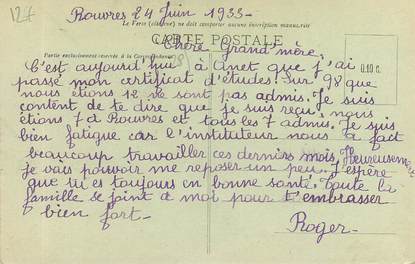 127
Rouvres 24 Juin 1933-
Le Verso (citadine) ne doit comporter aucune inscription manuscrite
CARTE POSTALE
Partie exclusivement réservée à la Correspondance
Chère Grand'mère,
C'est aujourd'hui à Anet que j'ai
passé mon certificat d'études. Sur 98 que
nous étions se ne sont pas admis. Je suis
content de te dire que je suis reçu. nous
étions 7 d Rouvres et tous les 7 admis. Je suis
bien fatigué car l'instituteur nous a fait
beaucoup travailler ces derniers mois, Heureusement
je vais pouvoir me reposer un peu. J'espère
que tu es toujours en bonne santé. Toute la
famille se joint à moi pour t'embrasser
bien fort-
Roger-
0.10 c.